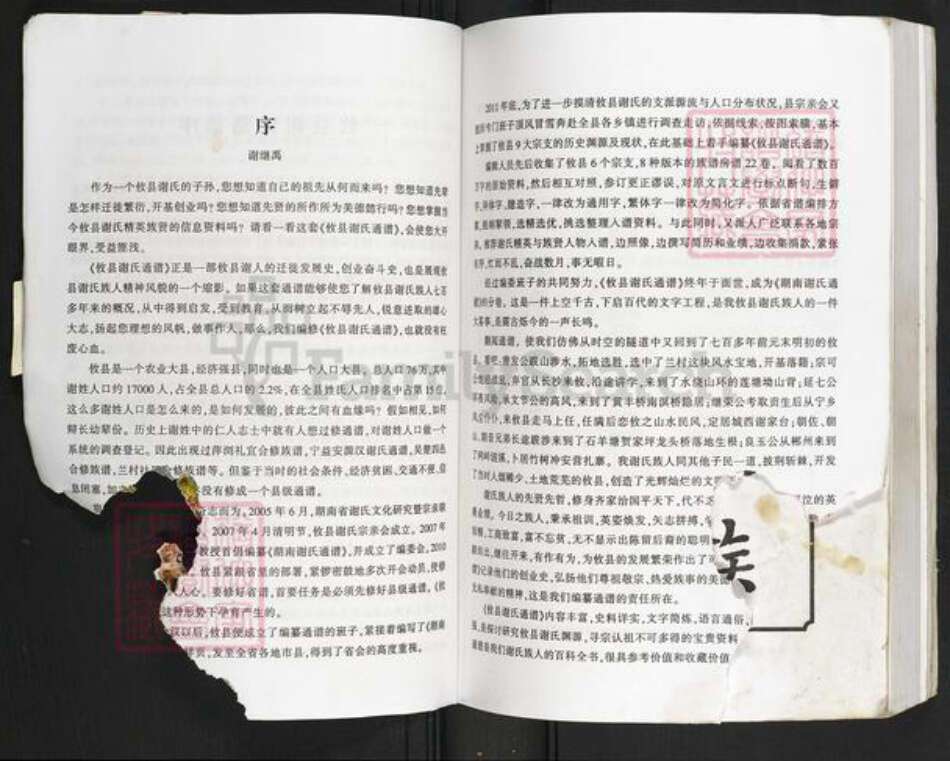 序
谢继禹
作为一个攸县谢氏的子孙,您想知道自己的祖先从何而来吗?您想知道先辈
是怎样迁徙繁衍,开基创业吗?您想知道先贤的所作所为美德懿行吗?您想掌握当
今攸县谢氏精英族贤的信息资料吗?请看一看这套《攸县谢氏通谱》,会使您大开
眼界,受益匪浅。
《攸县谢氏通谱》正是一部攸县谢人的迁徙发展史,创业奋斗史,也是展现攸
县谢氏族人精神风貌的一个缩影。如果这套通谱能够使您了解攸县谢氏族人七百
多年来的概况,从中得到启发,受到教育,从而树立起不辱先人,锐意进取的雄心
大志,扬起您理想的风帆,做事作人,那么,我们编修《攸县谢氏通谱》,也就没有枉
废心血。
攸县是一个农业大县,经济强县,同时也是一个人口大县。总人口76万,其中
谢姓人口约17000人,占全县总人口的2.2%,在全县姓氏人口排名中占第15位。
这么多谢姓人口是怎么来的,是如何发展的,彼此之间有血缘吗?假如相见,如何
辩长幼辈份。历史上谢姓中的仁人志士中就有人想过修通谱,对谢姓人口做一个
系统的调查登记。因此出现过萍浏礼宜合修族谱,宁益安源汉谢氏通谱,吴楚四邑
合修族谱,兰村社 合修族谱等。但鉴于当时的社会条件,经济贫困、交通不便、信
息闭塞, 没有修成一个县级通谱。
志而为。2005年6月,湖南省谢氏文化研究暨宗亲联
。2007年4月清明节,攸县谢氏宗亲会成立。2007年
教授首倡编纂《湖南谢氏通谱》,并成立了编委会。2010
攸县紧跟省里的部署,紧锣密鼓地多次开会动员,使修
人心。要修好省谱,首要任务是必须先修好县级通谱。《攸
这种形势下孕育产生的。
议以后,攸县便成立了编纂通谱的班子,紧接着编写了《湖南
,发至全省各地市县,得到了省会的高度重视。
2010年底,为了进一步摸清攸县谢氏的支派源流与人口分布状况,县宗亲会又
门班子顶风冒雪奔赴全县各乡镇进行调查走访,依据线索,按图索骥,基本
上掌握了攸县9大宗支的历史渊源及现状,在此基础上着手编纂《攸县谢氏通谱》。
编辑人员先后收集了攸县6个宗支,8种版本的族谱房谱22卷。阅看了数百
万字的原始资料,然后相互对照,参订更正谬误,对原文言文进行标点断句,生僻
字、异体字、臆造字,一律改为通用字,繁体字一律改为简化字。依据省谱编排方
案,选精选优,挑选整理人谱资料。与此同时,又派人广泛联系各地宗
亲,推荐谢氏精英与族贤人物入谱,边照像,边撰写简历和业绩,边收集捐款,紧张
有序,忙而不乱,奋战数月,事无暇日。
经过编委班子的共同努力,《攸县谢氏通谱》终年于面世,成为《湖南谢氏通
谱》的分卷。这是一件上空千古,下启百代的文字工程,是我攸县谢氏族人的一件
大喜事,是震古烁今的一声长鸣。
翻阅通谱,使我们仿佛从时空的隧道中又回到了七百多年前元末明初的攸
县。看吧:贵发公跋山涉水,拓地选胜,选中了兰村这块风水宝地,开基落籍;宗可
公,弃官从长沙来攸,沿途讲学,来到了水绕山环的莲塘坳山背;延七公
承文节公的高风,来到了黄丰桥南溟桥隐居;继荣公考取贡生后从宁乡
来攸县走马上任,任满后恋攸之山水民风,定居城西谢家台;朝佐、朝
兄弟长途跋涉来到了石羊塘贺家坪龙头桥落地生根;良玉公从郴州来到
了,卜居竹树冲安营扎寨。我谢氏族人同其他子民一道,披荆斩棘,开发
了当时人烟稀少,土地荒芜的攸县,创造了光辉灿烂的文
谢氏族人的先贤先哲,修身齐家治国平天下,代不乏 位的英
。今日之族人,秉承祖训,英姿焕发,矢志拼搏,
工商致富,富不忘贫,无不显示出陈留后裔的聪明
继往开来,有作有为,为攸县的发展繁荣作出了可
们记录他们的创业史,弘扬他们尊祖敬宗、热爱族事的美德
的精神,这是我们编纂通谱的责任所在。
《攸县谢氏通谱》内容丰富,史料详实,文字简炼,语言通俗,
是探讨研究攸县谢氏渊源,寻宗认祖不可多得的宝贵资料
是我们谢氏族人的百科全书,很具参考价值和收藏价值